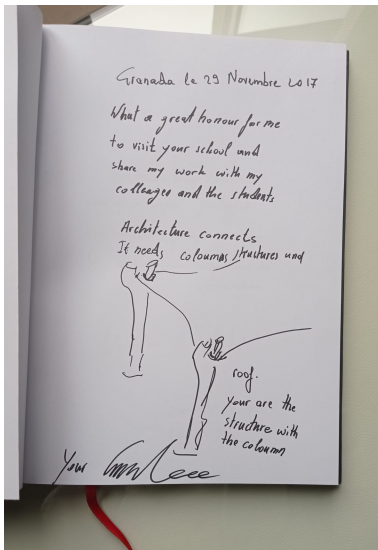 Granada le 29 Novembre 2017
What a great honour for me
to visit your school and
share my work with my
colleages and the students
Architecture connects
It needs coloumns structures und
roof.
Your are the
structure with
the coloumn
Your